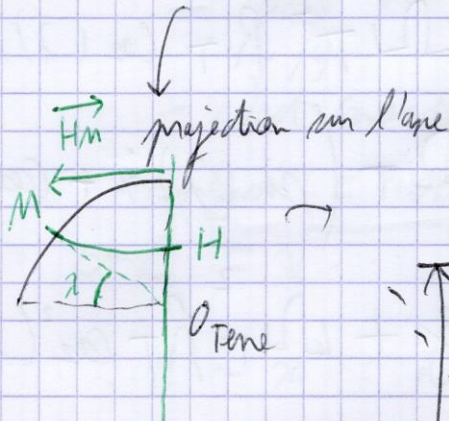 HM
projection sur l'axe
M
H
λ
O Terre